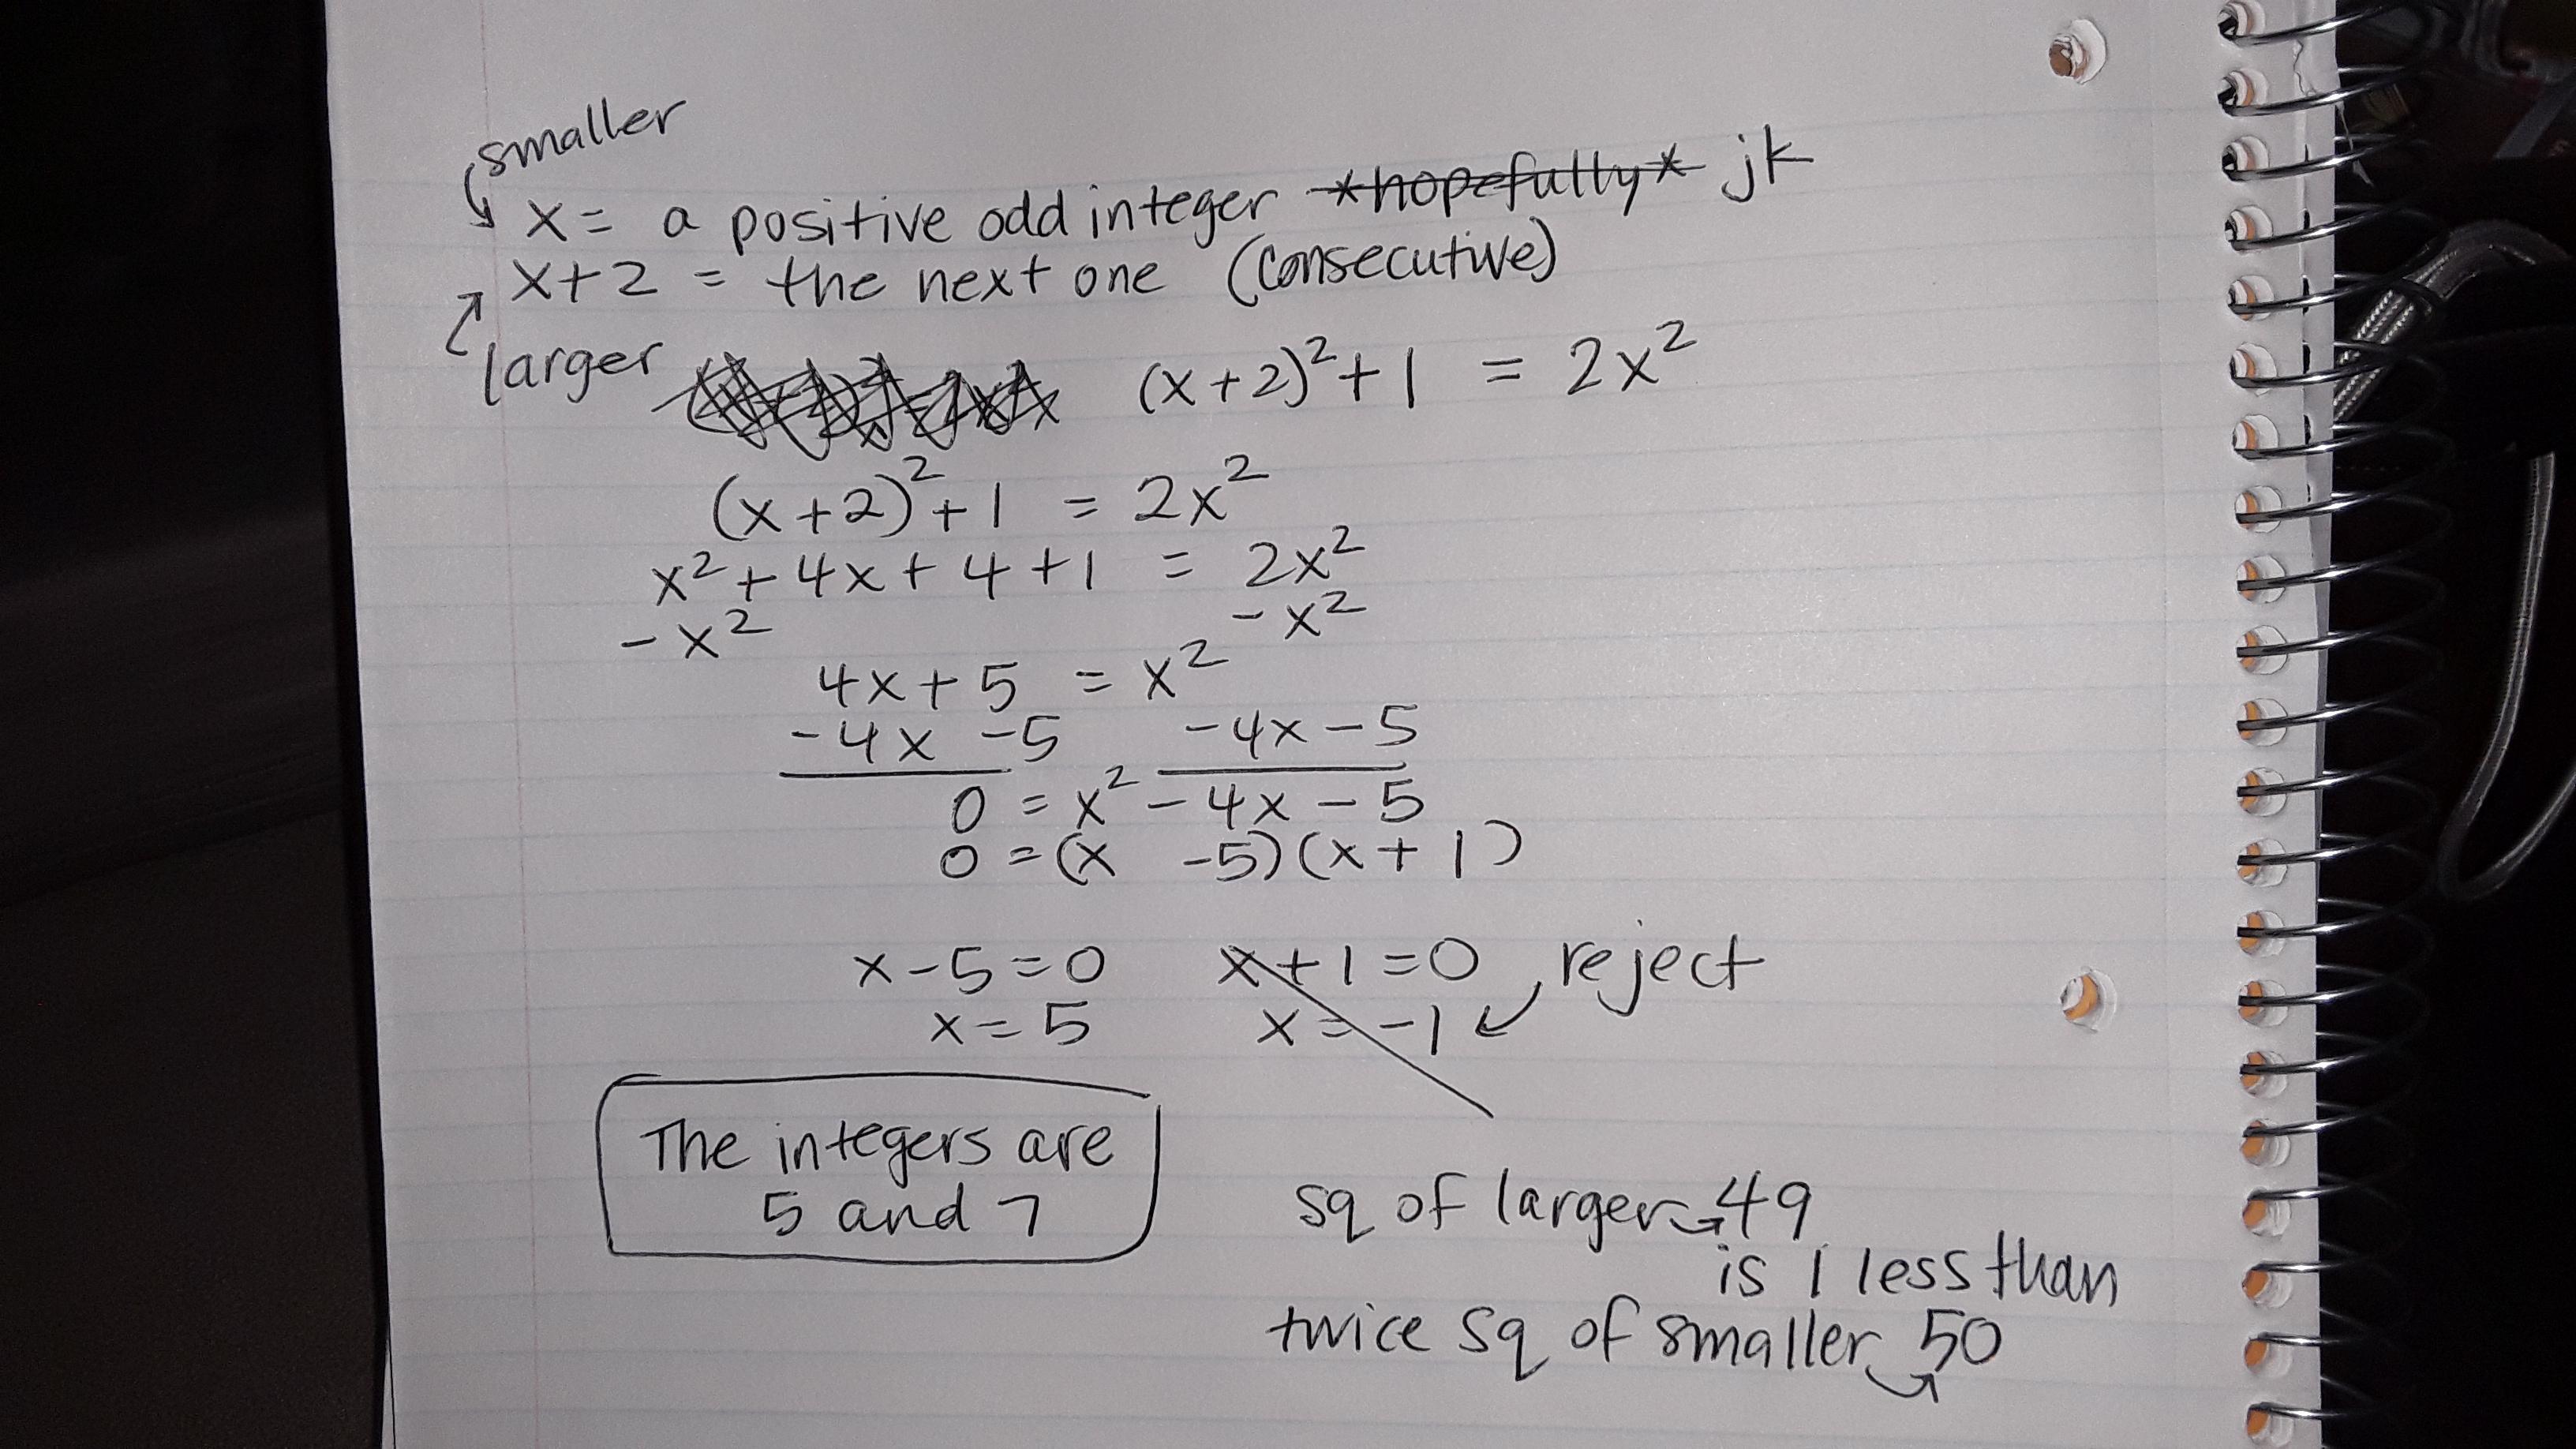 smaller
x = a positive odd integer *hopefully* jk
x+2 = the next one (consecutive)
larger
(x+2)²+1 = 2x²
(x+2)²+1 = 2x²
x²+4x+4+1 = 2x²
-x² -x²
4x+5 = x²
-4x -5 -4x-5
0 = x²-4x-5
0 = (x -5)(x+1)
x-5=0 x+1=0 reject
x=5 x=-1
The integers are
5 and 7
sq of larger 49
is 1 less than
twice sq of smaller 50